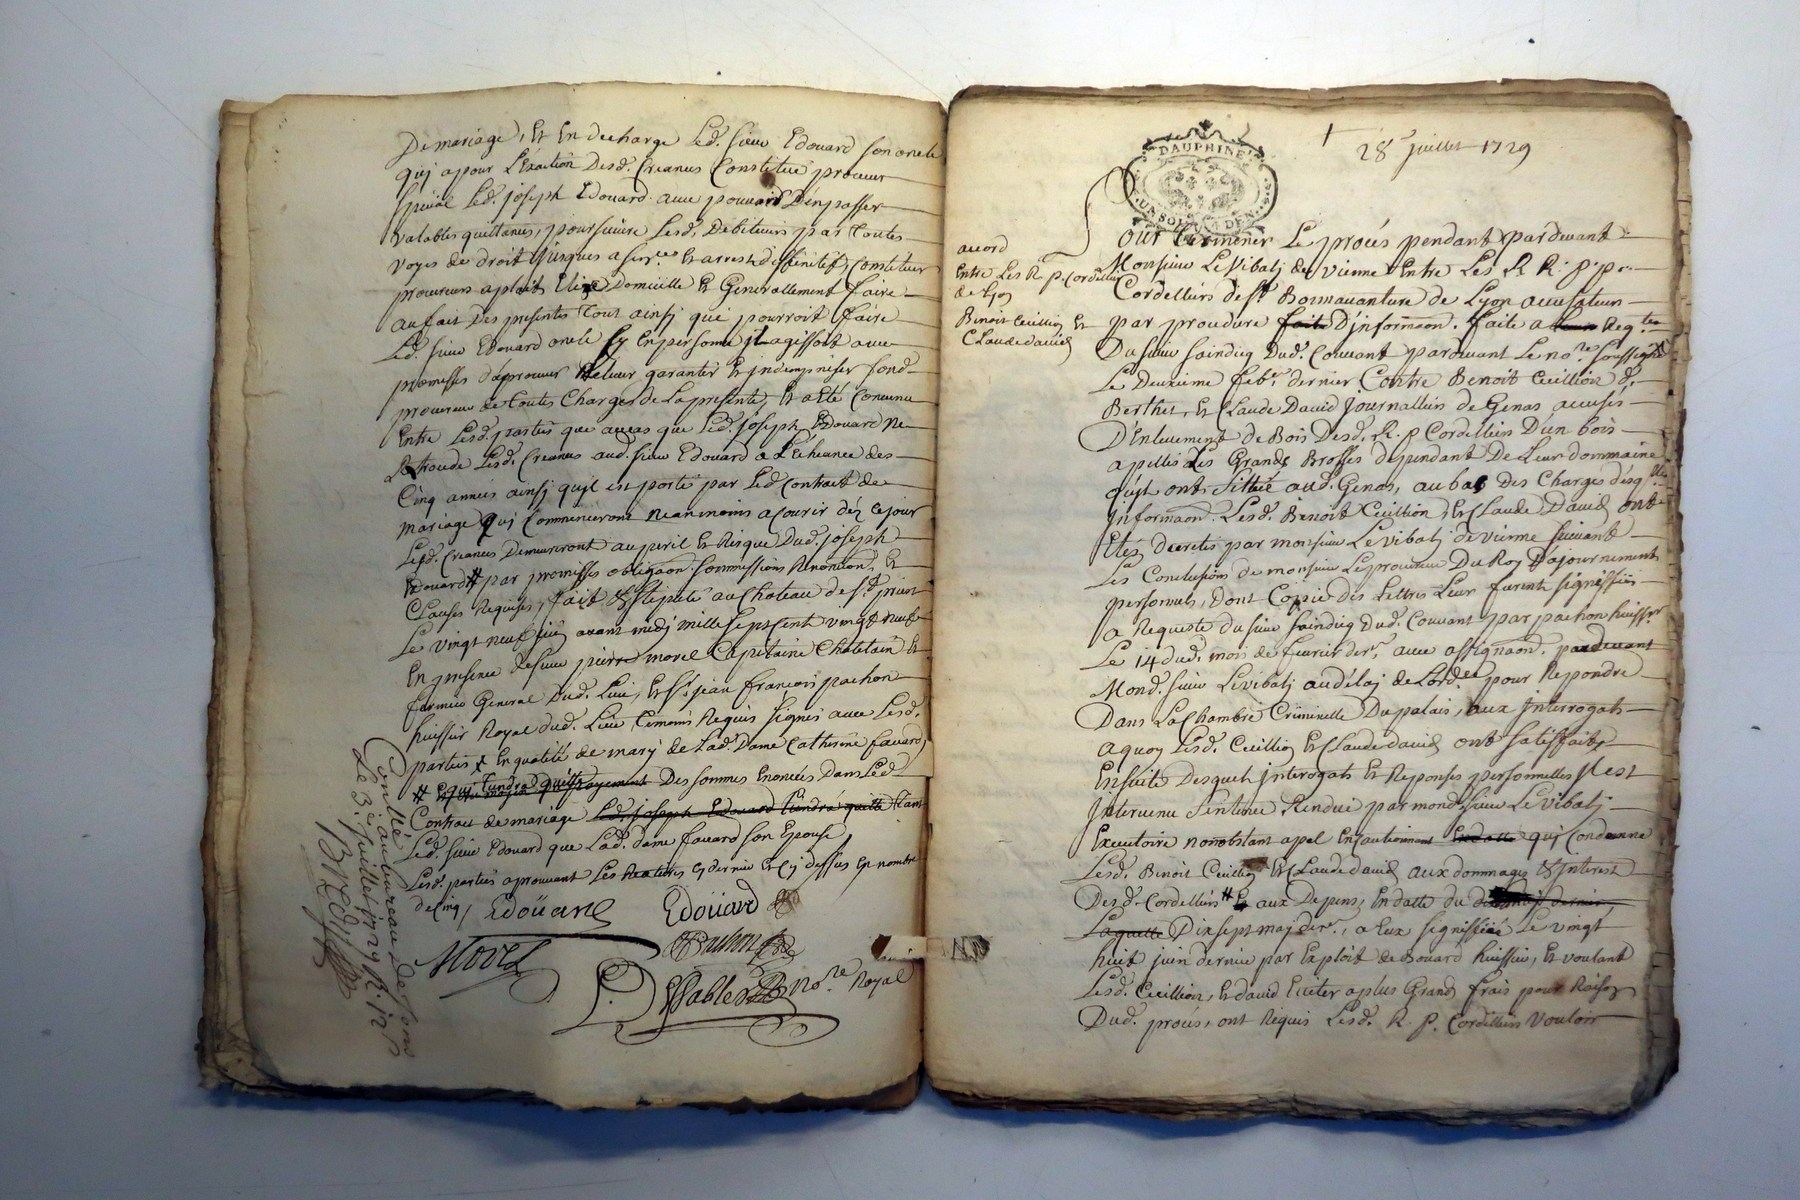 De mariage, Et En decharge Led. sieur Edouard son oncle
qui a pour L'Exaction Desd. Creances Constitué procureur
special Led. joseph Edouard avec pouvoir D'en passer
valables quittances, poursuivre Lesd. Debiteurs par toutes
voyes de droit jusques a sen.ce et arrest diffinitif, constituer
procureurs Elire Domicille Et Generallement faire
au fait Des presentes tout ainsi que pourroit faire
Led. sieur Edouard oncle sy En personne il agissoit avec
promesses d'aprouver Relever garantir Et indempniser sond.
procureur de toutes Charges de La presente, Et a Eté Convenu
Entre Lesd. parties que au cas que Led. joseph Edouard Ne
Lesd. Creances aud. sieur Edouard a L'Echeance des
Cinq années ainsi qu'il est porté par Led. Contract de
mariage Qui Commenceront neanmoins a courir dez ce jour
Lesd. Creances Demeureront au peril Et Risque Dud. joseph
Edouard # par promesses obligaon. soumissions Renoncions. Et
Clauses Requises, fait & stipulé au Chateau de St. priest
Le vingt neuf juin avant midi mille sept cent vingt neuf
En presence de sieur pierre morel Capitaine Chatelain Et
fermier General dud. Lieu, Et Sr. jean francois pachon
huissier Royal dud. Lieu temoins Requis signés avec Lesd.
parties x En qualité de mary de Lad. Dame Catherine favard
# Des sommes Enoncées Dans Led.
Contract de mariage Led. joseph Edouard tiendra quitte tant
Led. sieur Edouard que Lad. dame favard son Epouse
Lesd. parties aprouvant Les Ratures cy dernier Et cy dessus En nombre
de cinq,
Edoüard Edoüard
Morel Pachon
Essables No.re Royal
Controllé au bureau de
Le 3e juillet 1729 R.
accord
Entre Les R. p. Cordelliers
de Lyon
Benoit Cuillion Et
Claude david
DAUPHINE
UN SOL
28e juillet 1729
Pour terminer Le procés pendant pardevant
Monsieur Le Vibaly de vienne Entre Les R. R. p. p.
Cordelliers de St. Bonnavanture de Lyon accusateurs
par procedure faite D'informaon. faite a Req.te
Du sieur saindicq Dud. Couvant pardevant Le no.re soussigné
Le Deuxieme feb.r dernier Contre Benoit Cuillion d.
Berthet, Et Claude David journalliers de Genas accusés
D'Enlevement de Bois Desd. R. p. Cordelliers D'un bois
apellés Les Grands Brosses dependant De Leur dommaine
qu'jl ont sittué aud. Genas, au bas Des Charges desq.lles
jnformaon. Lesd. Benoit Cuillion, Et Claude David ont
Etés decretés par monsieur Le vibaly de vienne suivant
Les Conclusions de monsieur Le procureur Du Roy D'ajournement
personnel, Dont Copie des Lettres Leur furent signiffiées
a Requeste du sieur saindicq Dud. Couvant par pachon huissier
Le 14 dud. mois de fevrier der.r, avec assignaon. pardevant
Mond. sieur Le vibaly au délaj de L'ord.ce pour Repondre
Dans La Chambre Criminelle Du palais, aux jnterrogats
a quoy Lesd. Cuillion Et Claude david ont satisfait,
Ensuite Desquels jnterrogats Et Reponses personnelles Il est
Intervenu sentence Rendue par mond. sieur Le vibaly
Executoire nonobstant apel En cautionnant qui Condanne
Lesd. Benoit Cuillion Et Claude david aux dommages & Interest
Desd. Cordelliers # Et aux Depens, En datte du
Laquelle Dix sept may der.r, a Eux signiffiée Le vingt
huit juin dernier par Exploit de Bouard huissier, Et voulant
Lesd. Cuillion, Et david Eviter a plus Grands frais pour Raison
Dud. procés, ont Requis Lesd. R. p. Cordelliers vouloir